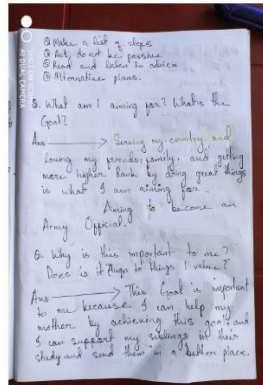 ① Make a list of steps
② Act, do not be passive
③ Read and listen to advice
④ Alternative plans.
5. What am I aiming for? What's the
Goal?
Ans → Serving my country, and
loving my friends, family, and getting
more higher Rank by doing great things
is what I am aiming for.
Aiming to become an
Army Official.
6. Why is this important to me?
Does it Align to things I value?
Ans → This Goal is important
to me because I can help my
mother by achieving this goal and
I can support my siblings of their
study and send them in a better place.
SHOT ON
AI DUAL CAMERA